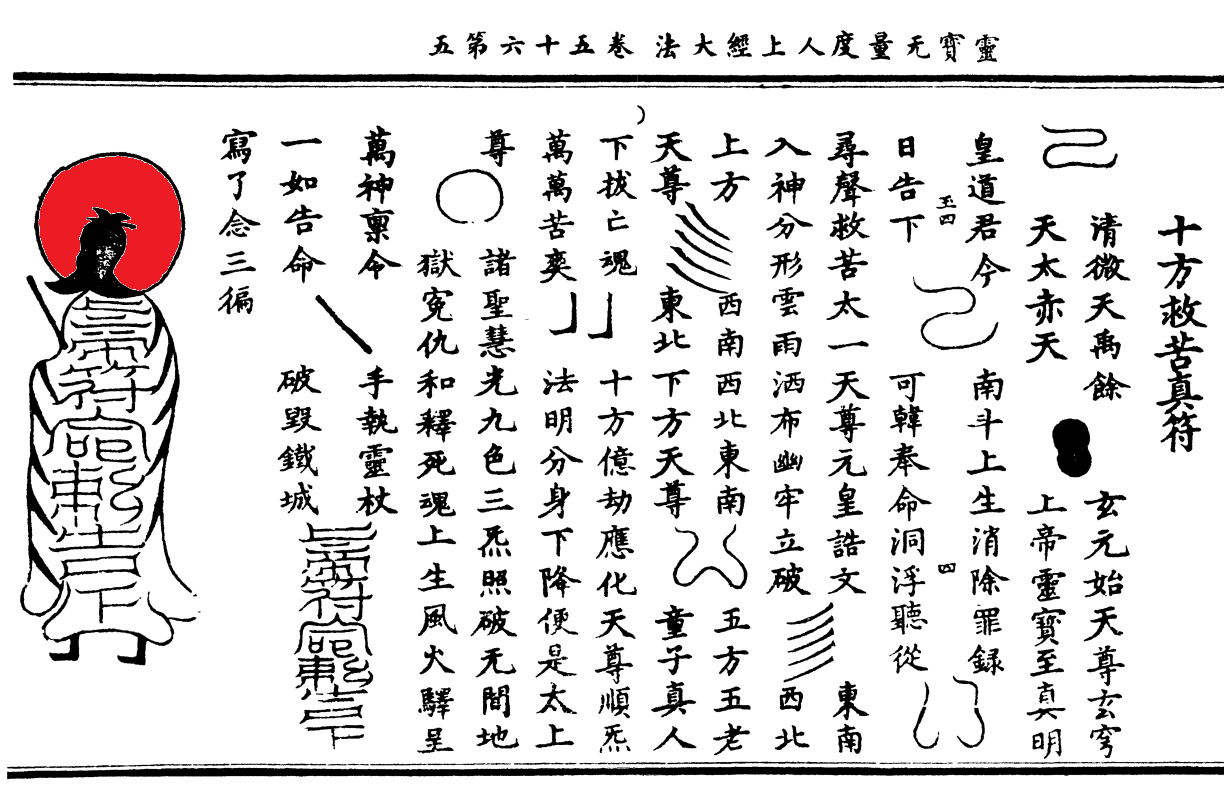 靈寶无量度人上經大法卷五十六第五
十方救苦真符
清微天禹餘
玄元始天尊玄穹
天太赤天
上帝靈寶至真明
皇道君今
南斗上生消除罪録
玉四
四
日告下
可韓奉命洞浮聽從
尋聲救苦太一天尊元皇誥文
東南
入神分形雲雨洒布幽牢立破
西北
上方
西南西北東南
五方五老
天尊
東北下方天尊
童子真人
下拔亡魂
十方億劫應化天尊順炁
萬萬苦爽
法明分身下降便是太上
尊
諸聖慧光九色三炁照破无間地
獄寃仇和釋死魂上生風火驛呈
萬神稟令
手執靈杖
一如告命
破毀鐵城
寫了念三徧